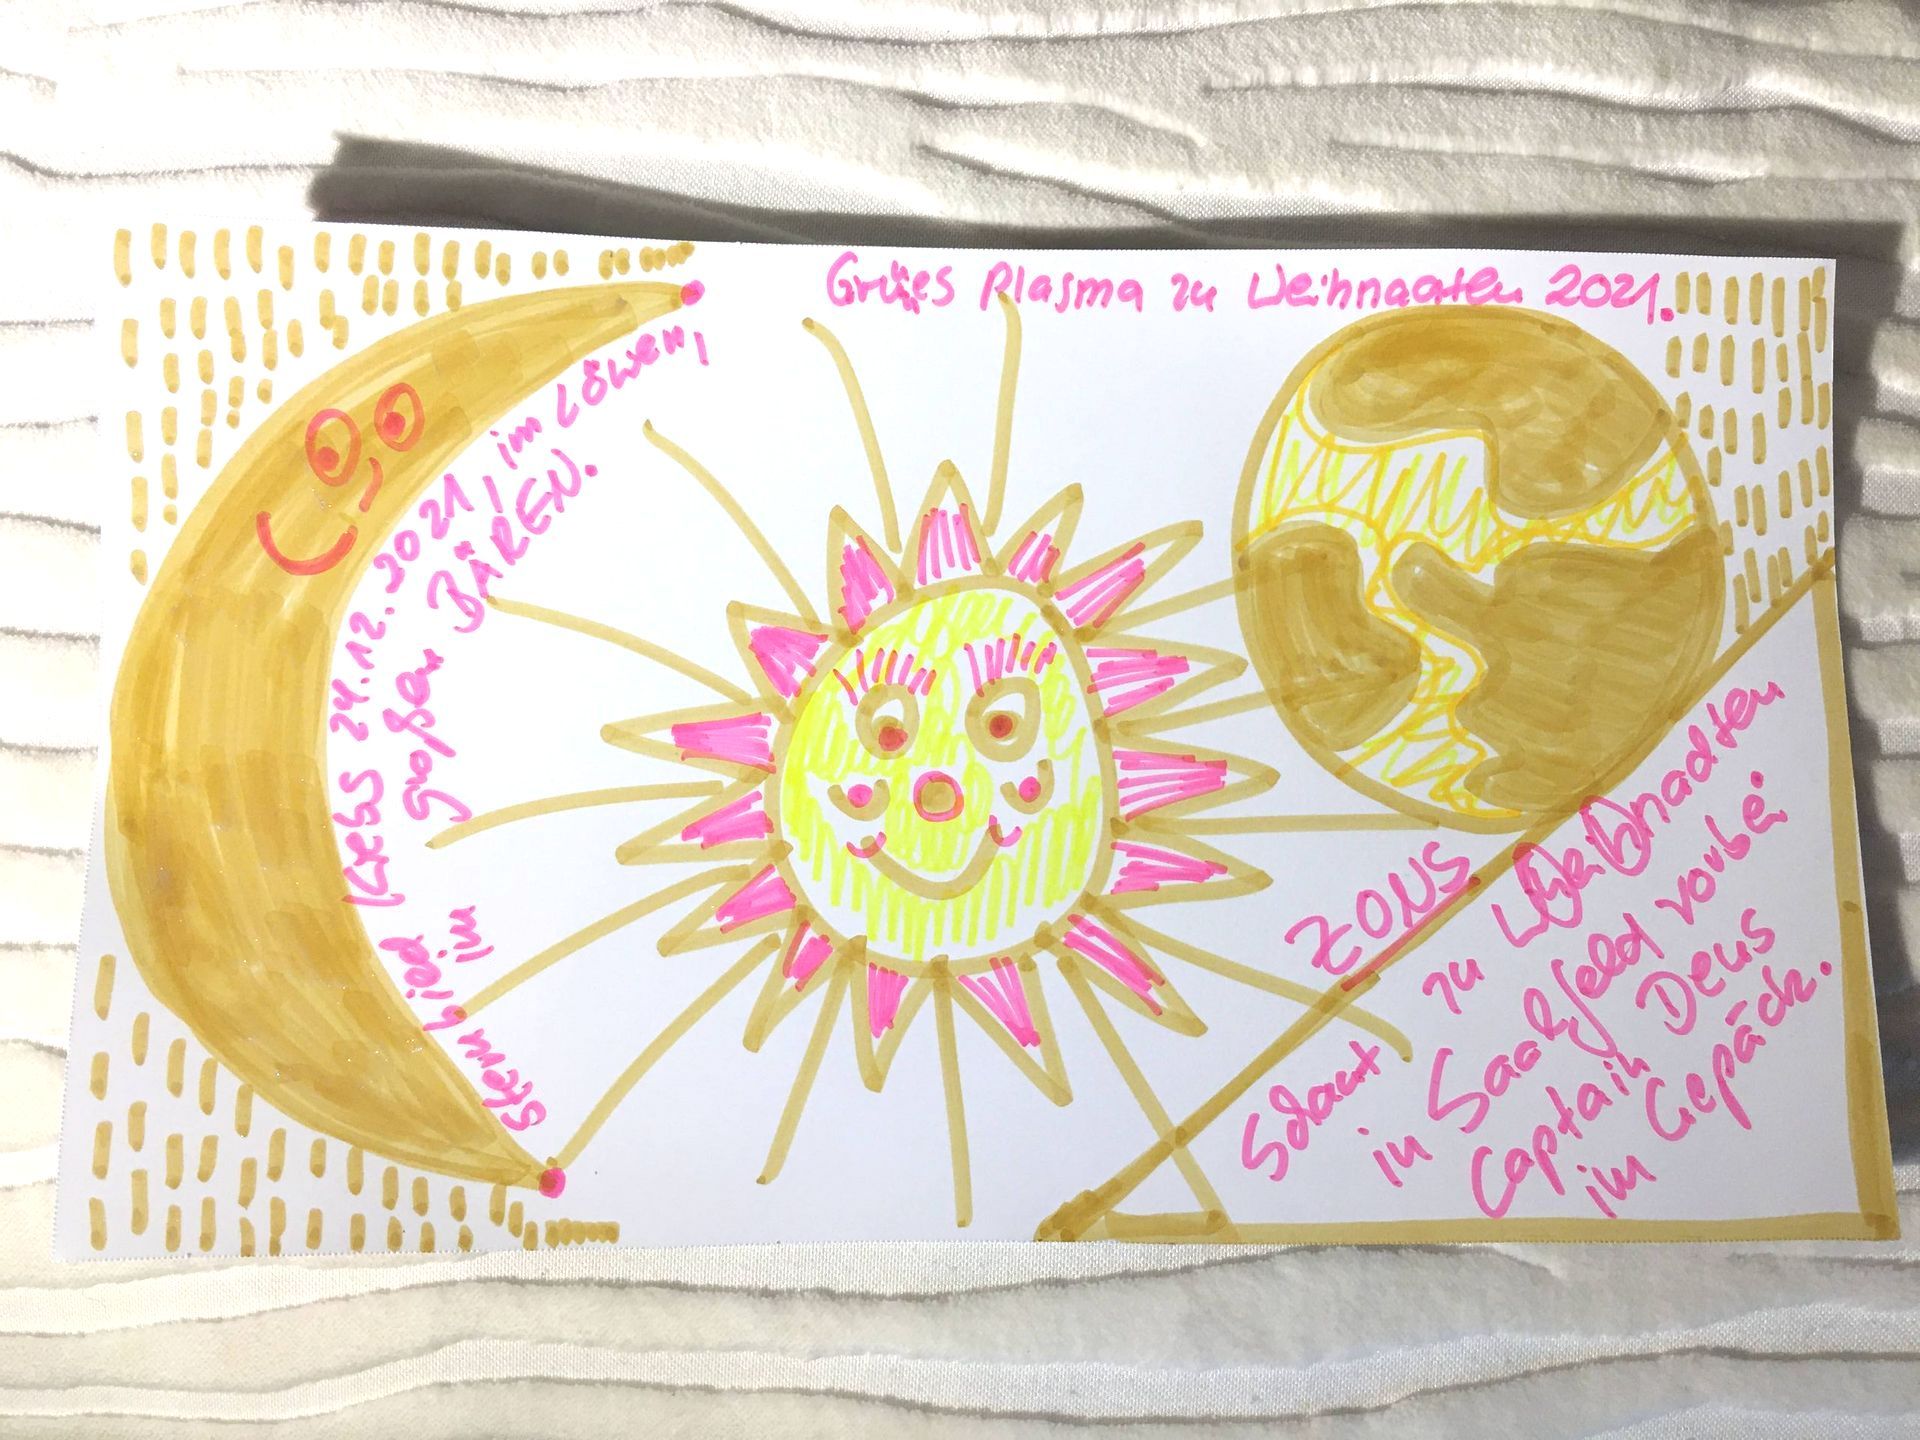 Grües Plasma zu Weihnachten 2021.
Sternbied Krebs 24.12.2021, im Löwen,
im großen BÄREN.
ZONS
Schaut zu Weihnachten
in Saalfeld vorbei
Captain Deus
im Gepäck.